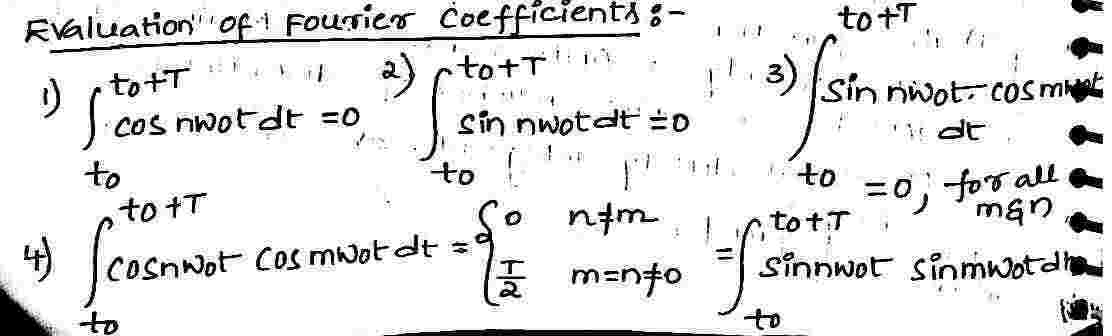 Evaluation of Fourier Coefficients :-
1) ∫_{to}^{to+T} cos nwot dt = 0 2) ∫_{to}^{to+T} sin nwot dt = 0 3) ∫_{to}^{to+T} sin nwot. cos mwot dt = 0; for all m&n
4) ∫_{to}^{to+T} cosnwot cos mwot dt = { 0 n≠m, T/2 m=n≠0 = ∫_{to}^{to+T} sinnwot sinmwot dt